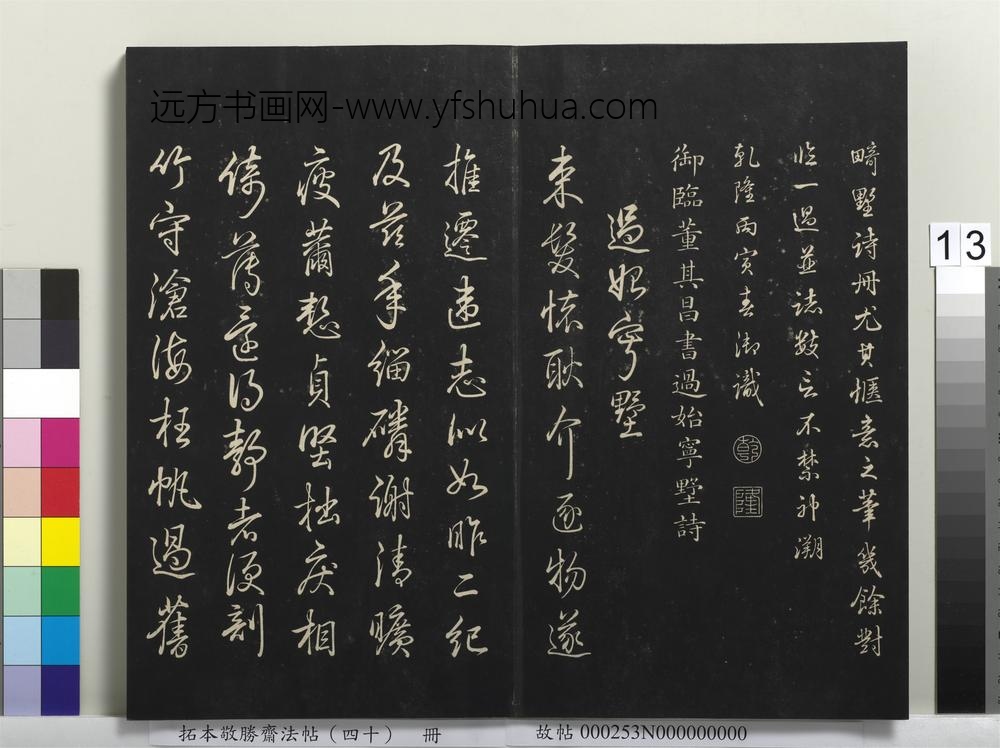 远方书画网-www.yfshuhua.com
疇墅诗冊尤其惬意之筆幾餘對
临一過並誌數言不禁神溯
乾隆丙寅春御識
乾
隆
御臨董其昌書過始寧墅詩
過始寧墅
束髮懷耿介逐物遂
推遷違志似如昨二紀
及茲年緇磷謝清曠
疲薾慙貞堅拙疾相
倚薄還得靜者便剖
竹守滄海枉帆過舊
13
拓本敬勝齋法帖（四十） 冊
故帖 000253N000000000